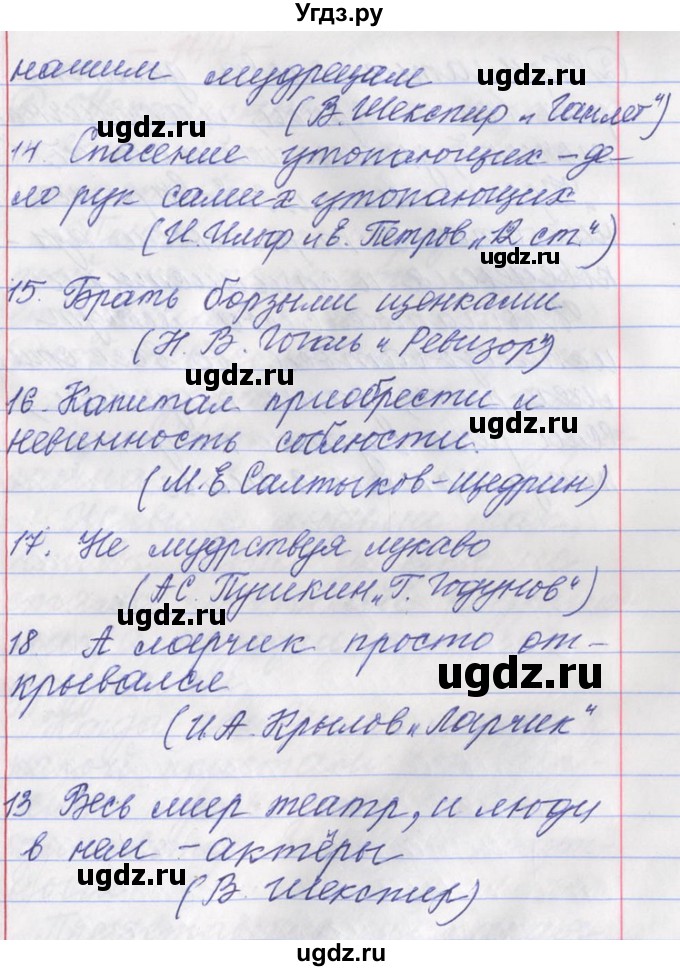 Угдз.ру
нашим мудрецам
ugdz.ru
(В. Шекспир „Гамлет")
ugdz.ru
14. Спасение утопающих – де-
ло рук самих утопающих
ugdz.ru
(И. Ильф и Е. Петров „12 ст.")
ugdz.ru
15. Брать борзыми щенками
(Н. В. Гоголь „Ревизор")
ugdz.ru
16. Капитал приобрести и
невинность соблюсти.
ugdz.ru
(М. Е. Салтыков-Щедрин)
17. Не мудрствуя лукаво
(А С. Пушкин „Г. Годунов")
ugdz.ru
18. А ларчик просто от-
крывался
ugdz.ru
(И. А. Крылов „Ларчик"
13 Весь мир театр, и люди
в нем – актёры
ugdz.ru
(В. Шекспир)
ugdz.ru